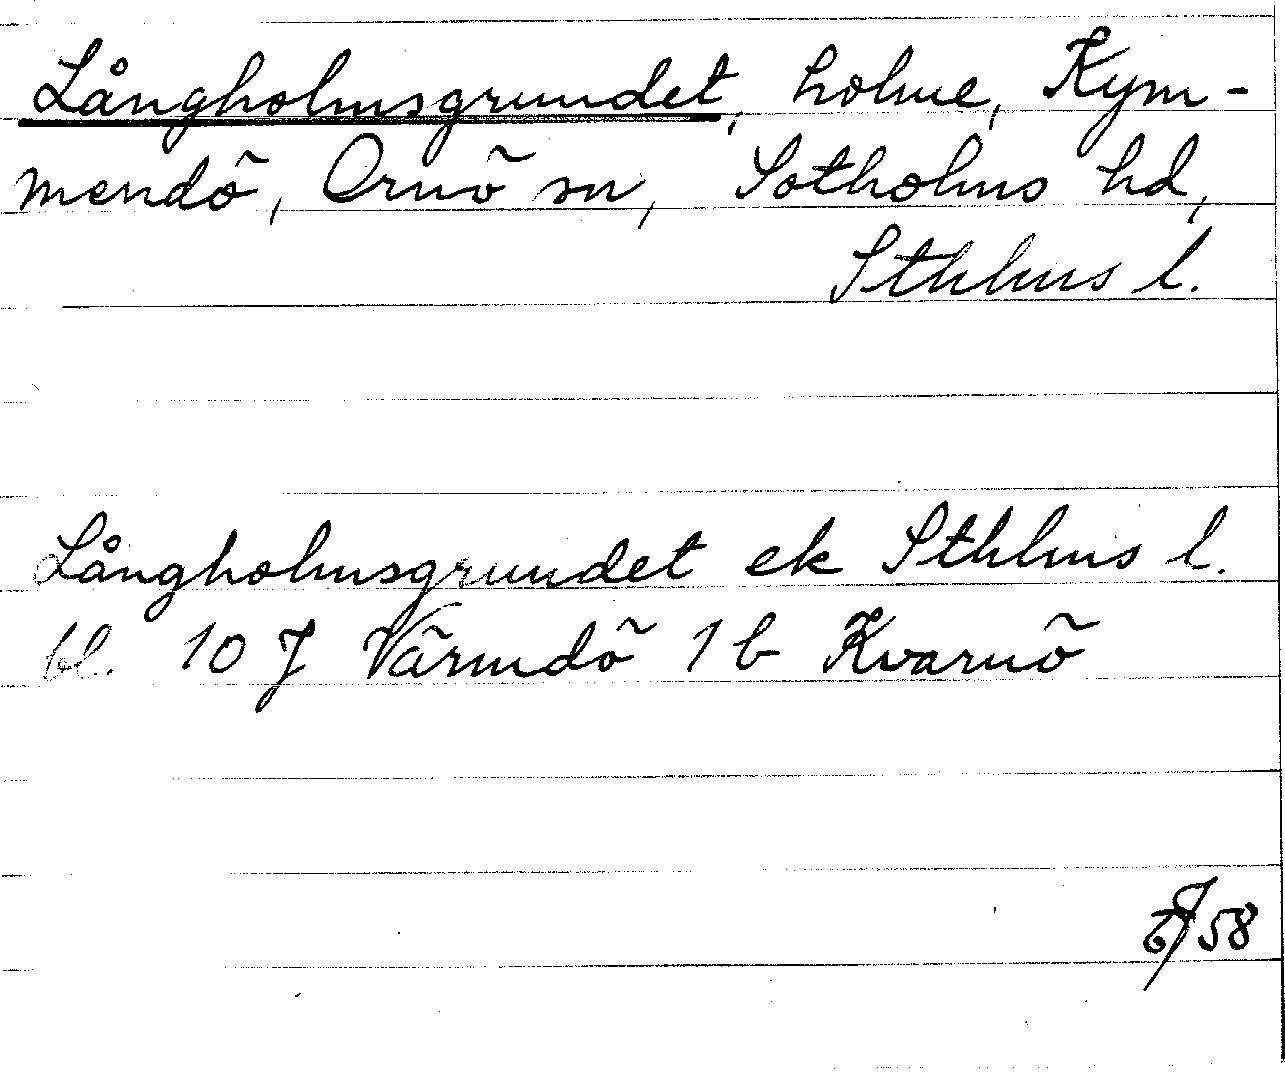 Långholmsgrundet, holme, Kym-
mendö, Ornö sn, Sotholms hd,
Sthlms l.
Långholmsgrundet ek Sthlms l.
bl. 10 J Värmdö 1 b Kvarnö
58